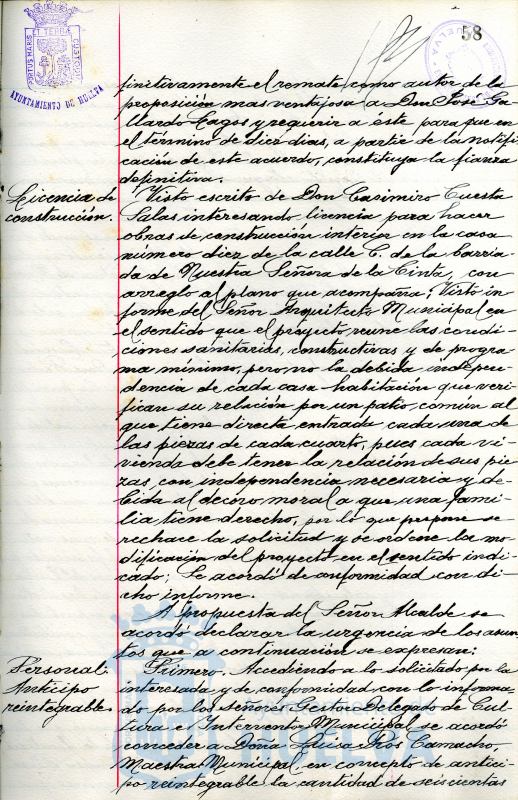 58
PORTUS MARIS ET TERRAE CUSTODIA
AYUNTAMIENTO DE HUELVA
finitivamente el remate como autor de la
proposición mas ventajosa a Don José Ga-
llardo Lagos y requerir a éste para que en
el término de diez dias, a partir de la notifi-
cación de este acuerdo, constituya la fianza
definitiva.
Licencia de
construcción.
Visto escrito de Don Casimiro Cuesta
Salas interesando licencia para hacer
obras de construcción interior en la casa
número diez de la calle C. de la barria-
da de Nuestra Señora de la Cinta, con
arreglo al plano que acompaña; Visto in-
forme del Señor Arquitecto Municipal en
el sentido que el proyecto reune las condi-
ciones sanitarias, constructivas y de progra-
ma mínimo, pero no la debida indepen-
dencia de cada casa-habitación que veri-
fican su relación por un patio común al
que tiene directa entrada cada una de
las piezas de cada cuarto, pues cada vi-
vienda debe tener la relación de sus pie-
zas, con independencia necesaria y de-
bida al decoro moral a que una fami-
lia tiene derecho, por lo que propone se
rechace la solicitud y se ordene la mo-
dificación del proyecto en el sentido indi-
cado; Se acordó de conformidad con di-
cho informe.
A propuesta del Señor Alcalde se
acordó declarar la urgencia de los asun-
tos que a continuación se expresan:
Personal:
Anticipo
reintegrable.
Primero. Accediendo a lo solicitado por la
interesada y de conformidad con lo informa-
do por los señores Gestor Delegado de Cul-
tura e Interventor Municipal se acordó
conceder a Doña Luisa Ros Camacho,
Maestra Municipal, en concepto de antici-
po reintegrable la cantidad de seiscientas